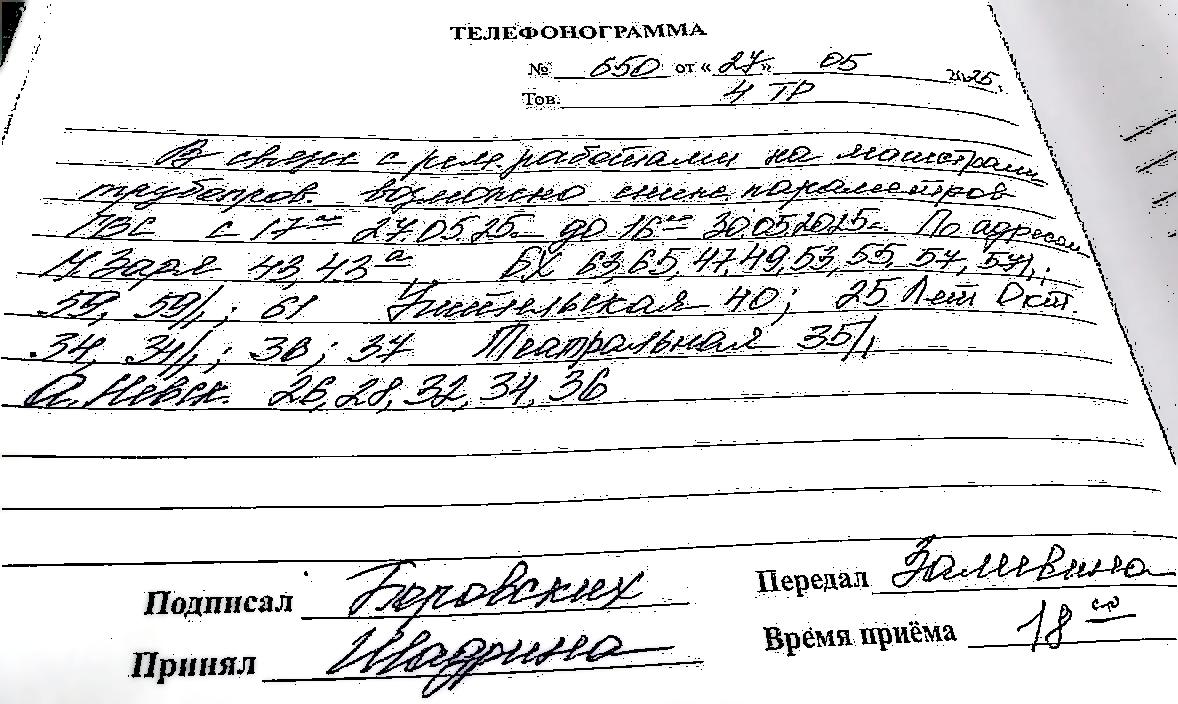 ТЕЛЕФОНОГРАММА
№ 650 от «27» 05 2025.
Тов. 4 ТР
В связи с рем. работами на магистрали
трубопров. возможно сниж. параметров
ГВС с 17⁰⁰ 27.05.25 до 16⁰⁰ 30.05.2025 По адресам
М. Заря 43, 43ᵃ БХ 63, 65, 47, 49, 53, 55, 57, 57/1;
59, 59/1; 61 Учительская 40; 25 Лет Окт.
34, 34/1; 36; 37 Театральная 35/1
А. Невск. 26, 28, 32, 34, 36
Подписал Боровских Передал Заливина
Принял Шадрина Время приёма 18